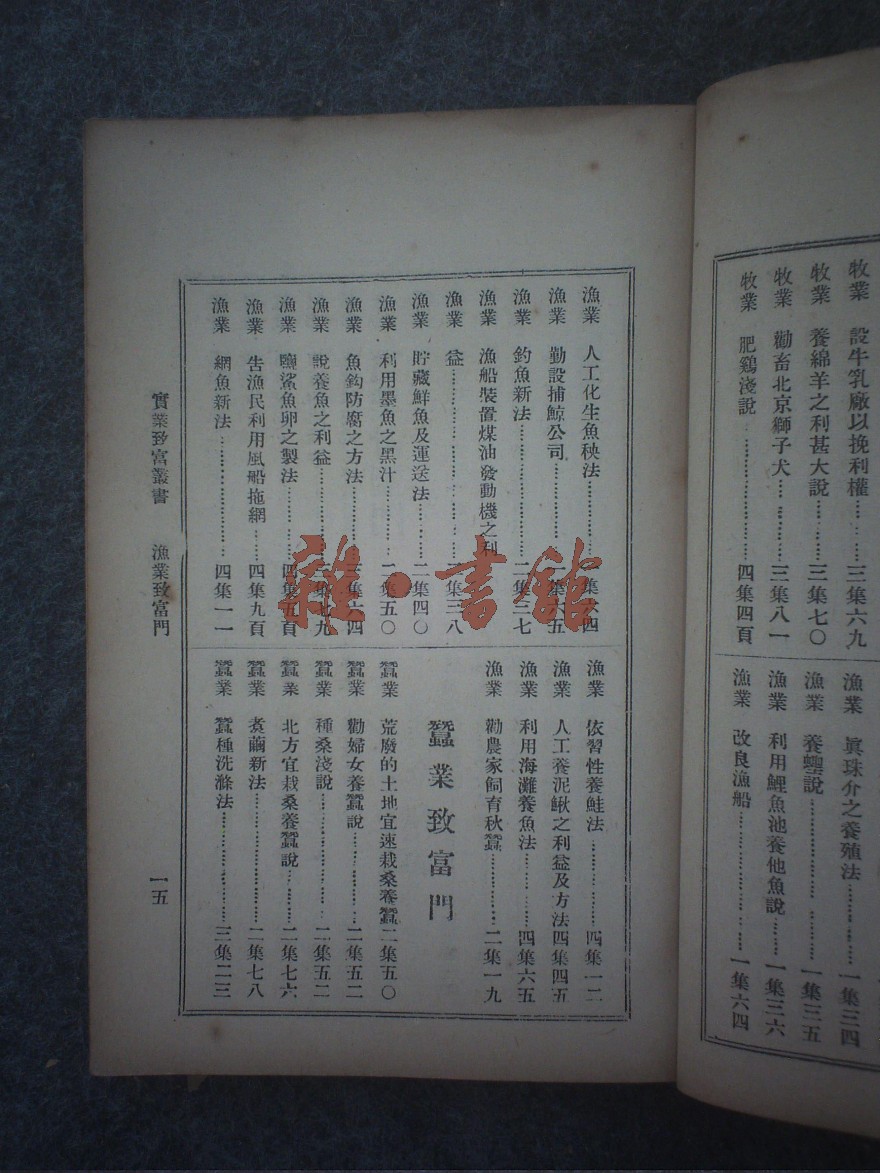 牧業 設牛乳廠以挽利權……三集六九
牧業 養綿羊之利甚大說……三集七〇
牧業 勸畜北京獅子犬……三集八一
牧業 肥鷄淺說……四集四頁
漁業 眞珠介之養殖法……一集三四
漁業 養蟶說……一集三五
漁業 利用鯉魚池養他魚說……一集三六
漁業 改良漁船……一集六四
漁業 人工化生魚秧法……集六四
漁業 勸設捕鯨公司……集六五
漁業 釣魚新法……二集三七
漁業 漁船裝置煤油發動機之利
漁業 益……集三八
漁業 貯藏鮮魚及運送法……二集四〇
漁業 利用墨魚之黑汁……二集五〇
漁業 魚鈎防腐之方法……三集六四
漁業 說養魚之利益……集七九
漁業 鹽鯊魚卵之製法……四集五頁
漁業 吿漁民利用風船拖網……四集九頁
漁業 網魚新法……四集一一
漁業 依習性養鮭法……四集一二
漁業 人工養泥鰍之利益及方法四集四五
漁業 利用海灘養魚法……四集六五
漁業 勸農家飼育秋蠶……二集一九
蠶業致富門
蠶業 荒廢的土地宜速栽桑養蠶二集五〇
蠶業 勸婦女養蠶說……二集五二
蠶業 種桑淺說……二集五二
蠶業 北方宜栽桑養蠶說……二集七六
蠶業 煮繭新法……二集七八
蠶業 蠶種洗滌法……三集二三
實業致富叢書 漁業致富門 一五
雜·書館